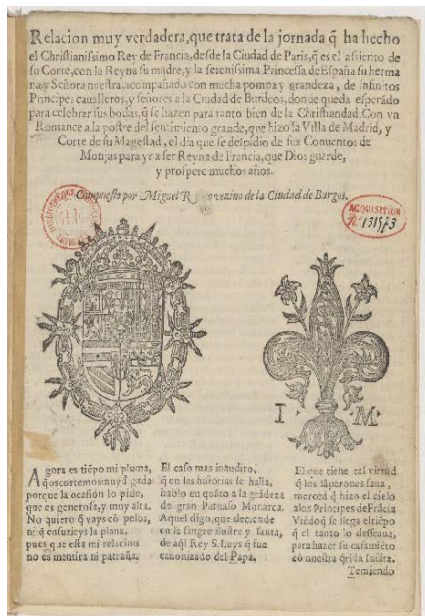 Relacion muy verdadera, que trata de la jornada q̃ ha hecho
el Christianissimo Rey de Francia, desde la Ciudad de Paris, q̃ es el assiento de
su Corte, con la Reyna su madre, y la serenissima Princessa de España su herma
na y Señora nuestra, acompañado con mucha pompa y grandeza, de infinitos
Principes cavalleros, y señores a la Ciudad de Burdeos, donde queda esperãdo
para celebrar sus bodas, q̃ se hazen para tanto bien de la Christiandad. Con vn
Romance a la postre del sentimiento grande, que hizo la Villa de Madrid, y
Corte de su Magestad, el dia que se despidio de sus Conuentos de
Monjas para yr a ser Reyna de Francia, que Dios guarde,
y prospere muchos años.
Compuesto por Miguel vezino de la Ciudad de Burgos.
ACQUISITION
Nº 131573
I M.
Agora es tiẽpo mi pluma,
q̃ os cortemos muy
porque la ocasion lo pide,
que es generosa, y muy alta.
No quiero q̃ vays cõ pelos,
ni q̃ ensuzieys la plana,
pues que esta mi relacion
no es mentira ni patraña.
El caso mas inaudito,
q̃ en las historias se halla,
hablo en quãto a la grãdeza
de gran Monarca.
Aquel digo, que deciende
en la sangre ilustre y santa,
de aq̃l Rey S. Luys q̃ fue
canonizado del Papa.
El que tiene tal virtud
q̃ los lãparones sana,
merced q̃ hizo el cielo
a los Principes de Frãcia
Viẽdo q̃ se llega el tiẽpo
q̃ el tanto lo desseaua,
para hazer su casamiẽto
cõ nuestra q̃rida Infãta.
Temiendo